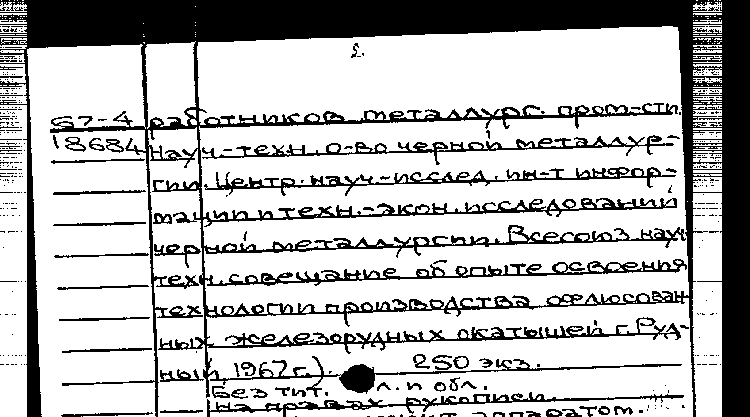 2.
67-4 работников металлург. пром-сти.
18684 Науч.-техн. о-во черной металлур-
гии. Центр. науч.-исслед. ин-т инфор-
мации и техн.-экон. исследований
черной металлургии. Всесоюз. науч
техн. совещание об опыте освоения
технологии производства офлюсован-
ных железорудных окатышей г. Руд-
ный, 1967 г.). 250 экз.
Без тит. л. и обл.
на правах рукописи.
аппаратом.